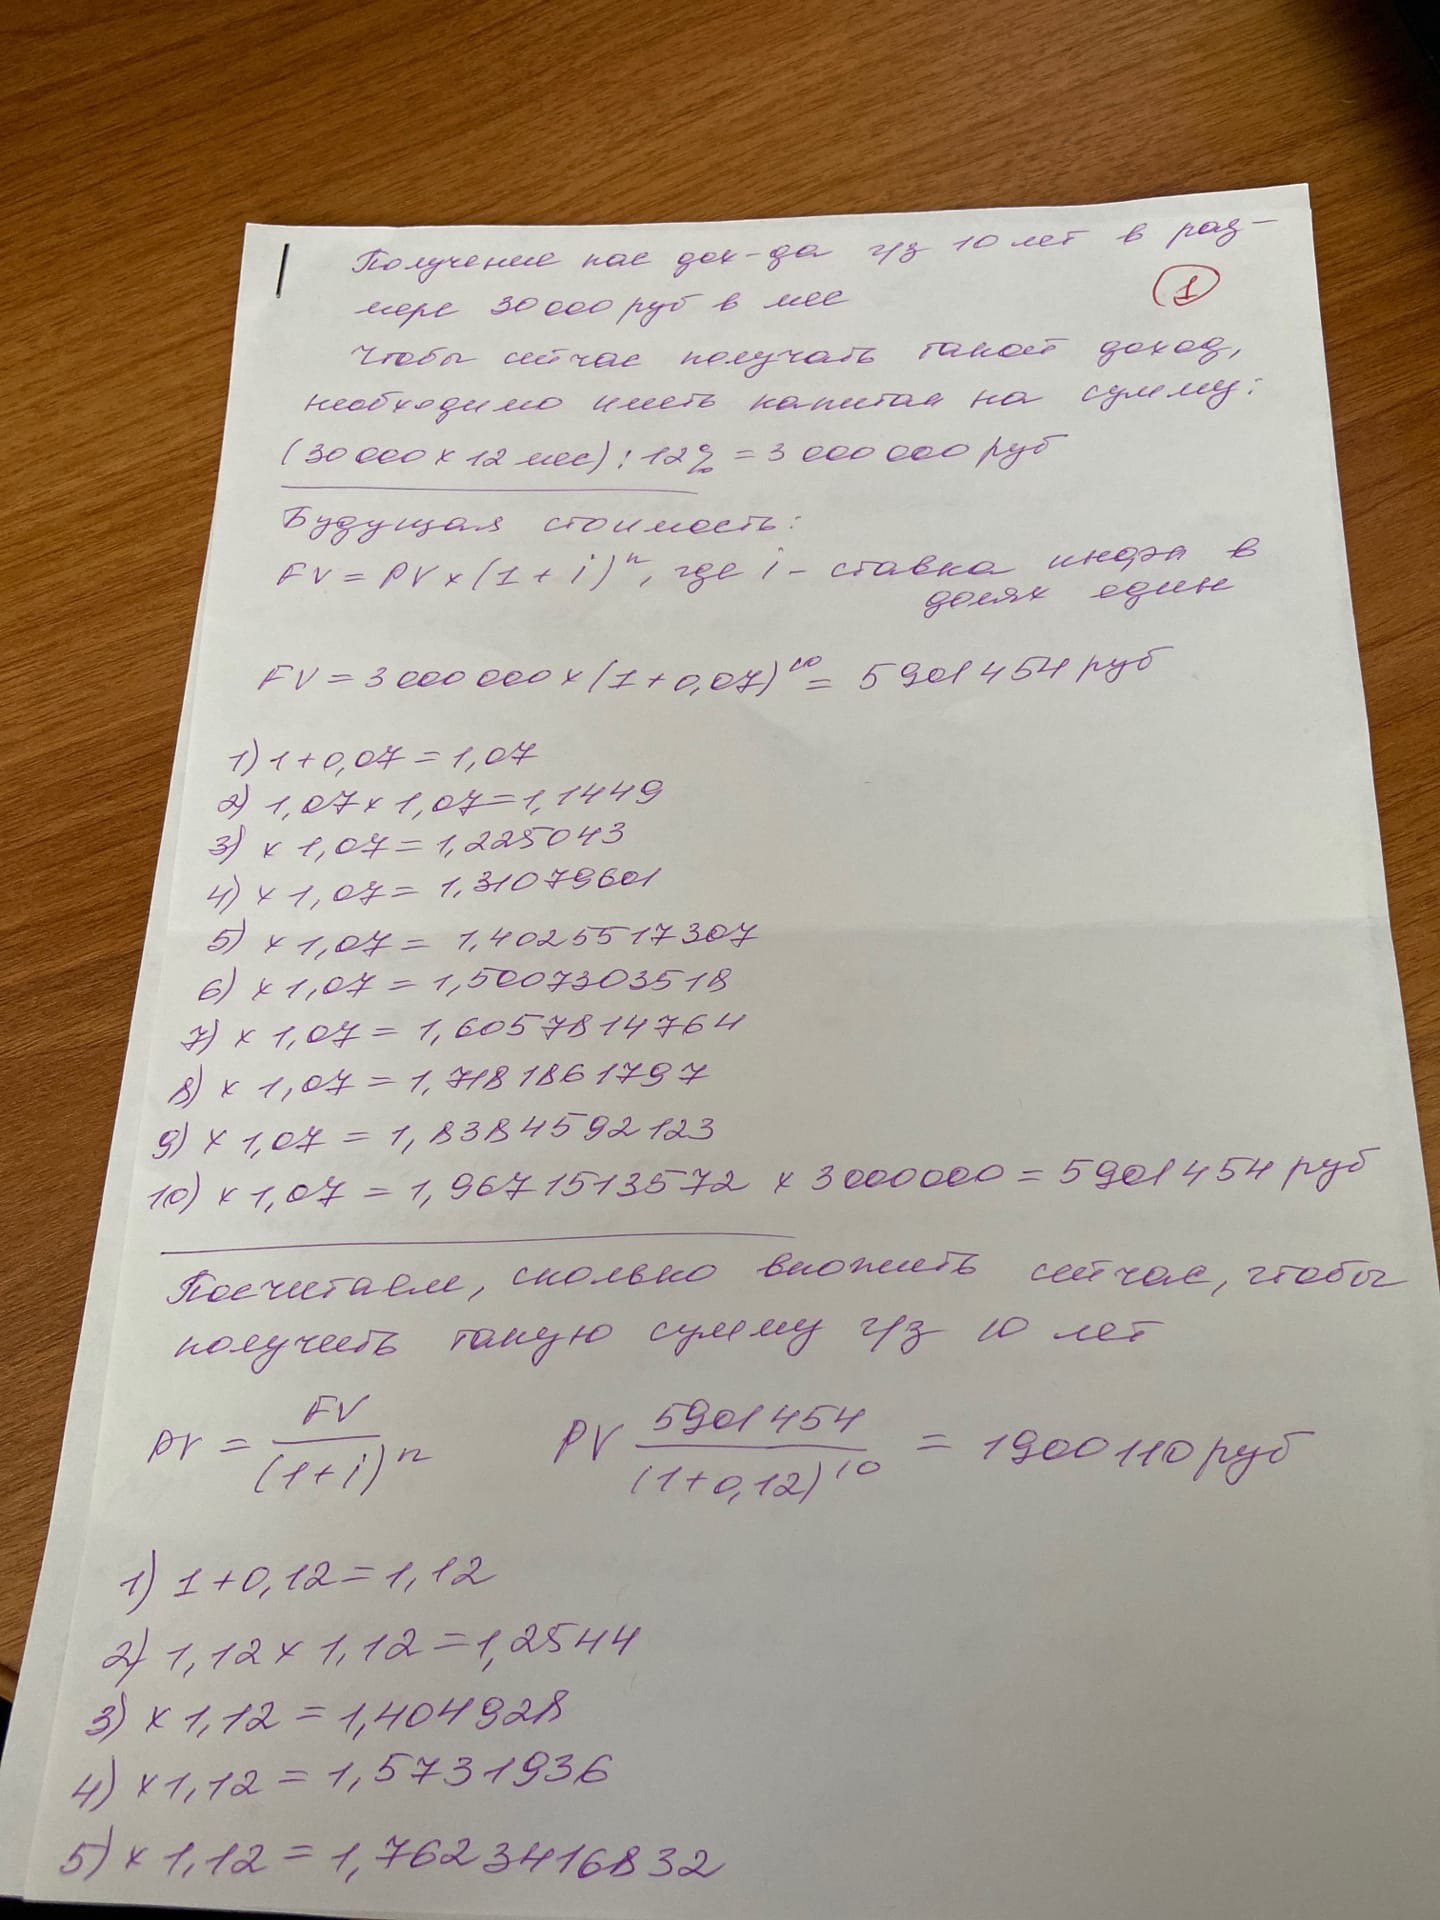 Получение пас дох-да ч/з 10 лет в раз-
мере 30 000 руб в мес
1
Чтобы сейчас получать такой доход,
необходимо иметь капитал на сумму:
(30 000 х 12 мес) : 12% = 3 000 000 руб
Будущая стоимость:
FV = PV x (1 + i)^n, где i - ставка инфл в
долях един
FV = 3 000 000 x (1 + 0,07)^10 = 5 901 454 руб
1) 1 + 0,07 = 1,07
2) 1,07 x 1,07 = 1,1449
3) x 1,07 = 1,225043
4) x 1,07 = 1,31079601
5) x 1,07 = 1,4025517307
6) x 1,07 = 1,5007303518
7) x 1,07 = 1,6057814764
8) x 1,07 = 1,7181861797
9) x 1,07 = 1,8384592123
10) x 1,07 = 1,9671513572 x 3 000 000 = 5 901 454 руб
Посчитаем, сколько вложить сейчас, чтобы
получить такую сумму ч/з 10 лет
PV = FV / (1 + i)^n PV 5 901 454 / (1 + 0,12)^10 = 1 900 110 руб
1) 1 + 0,12 = 1,12
2) 1,12 x 1,12 = 1,2544
3) x 1,12 = 1,404928
4) x 1,12 = 1,5731936
5) x 1,12 = 1,7623416832